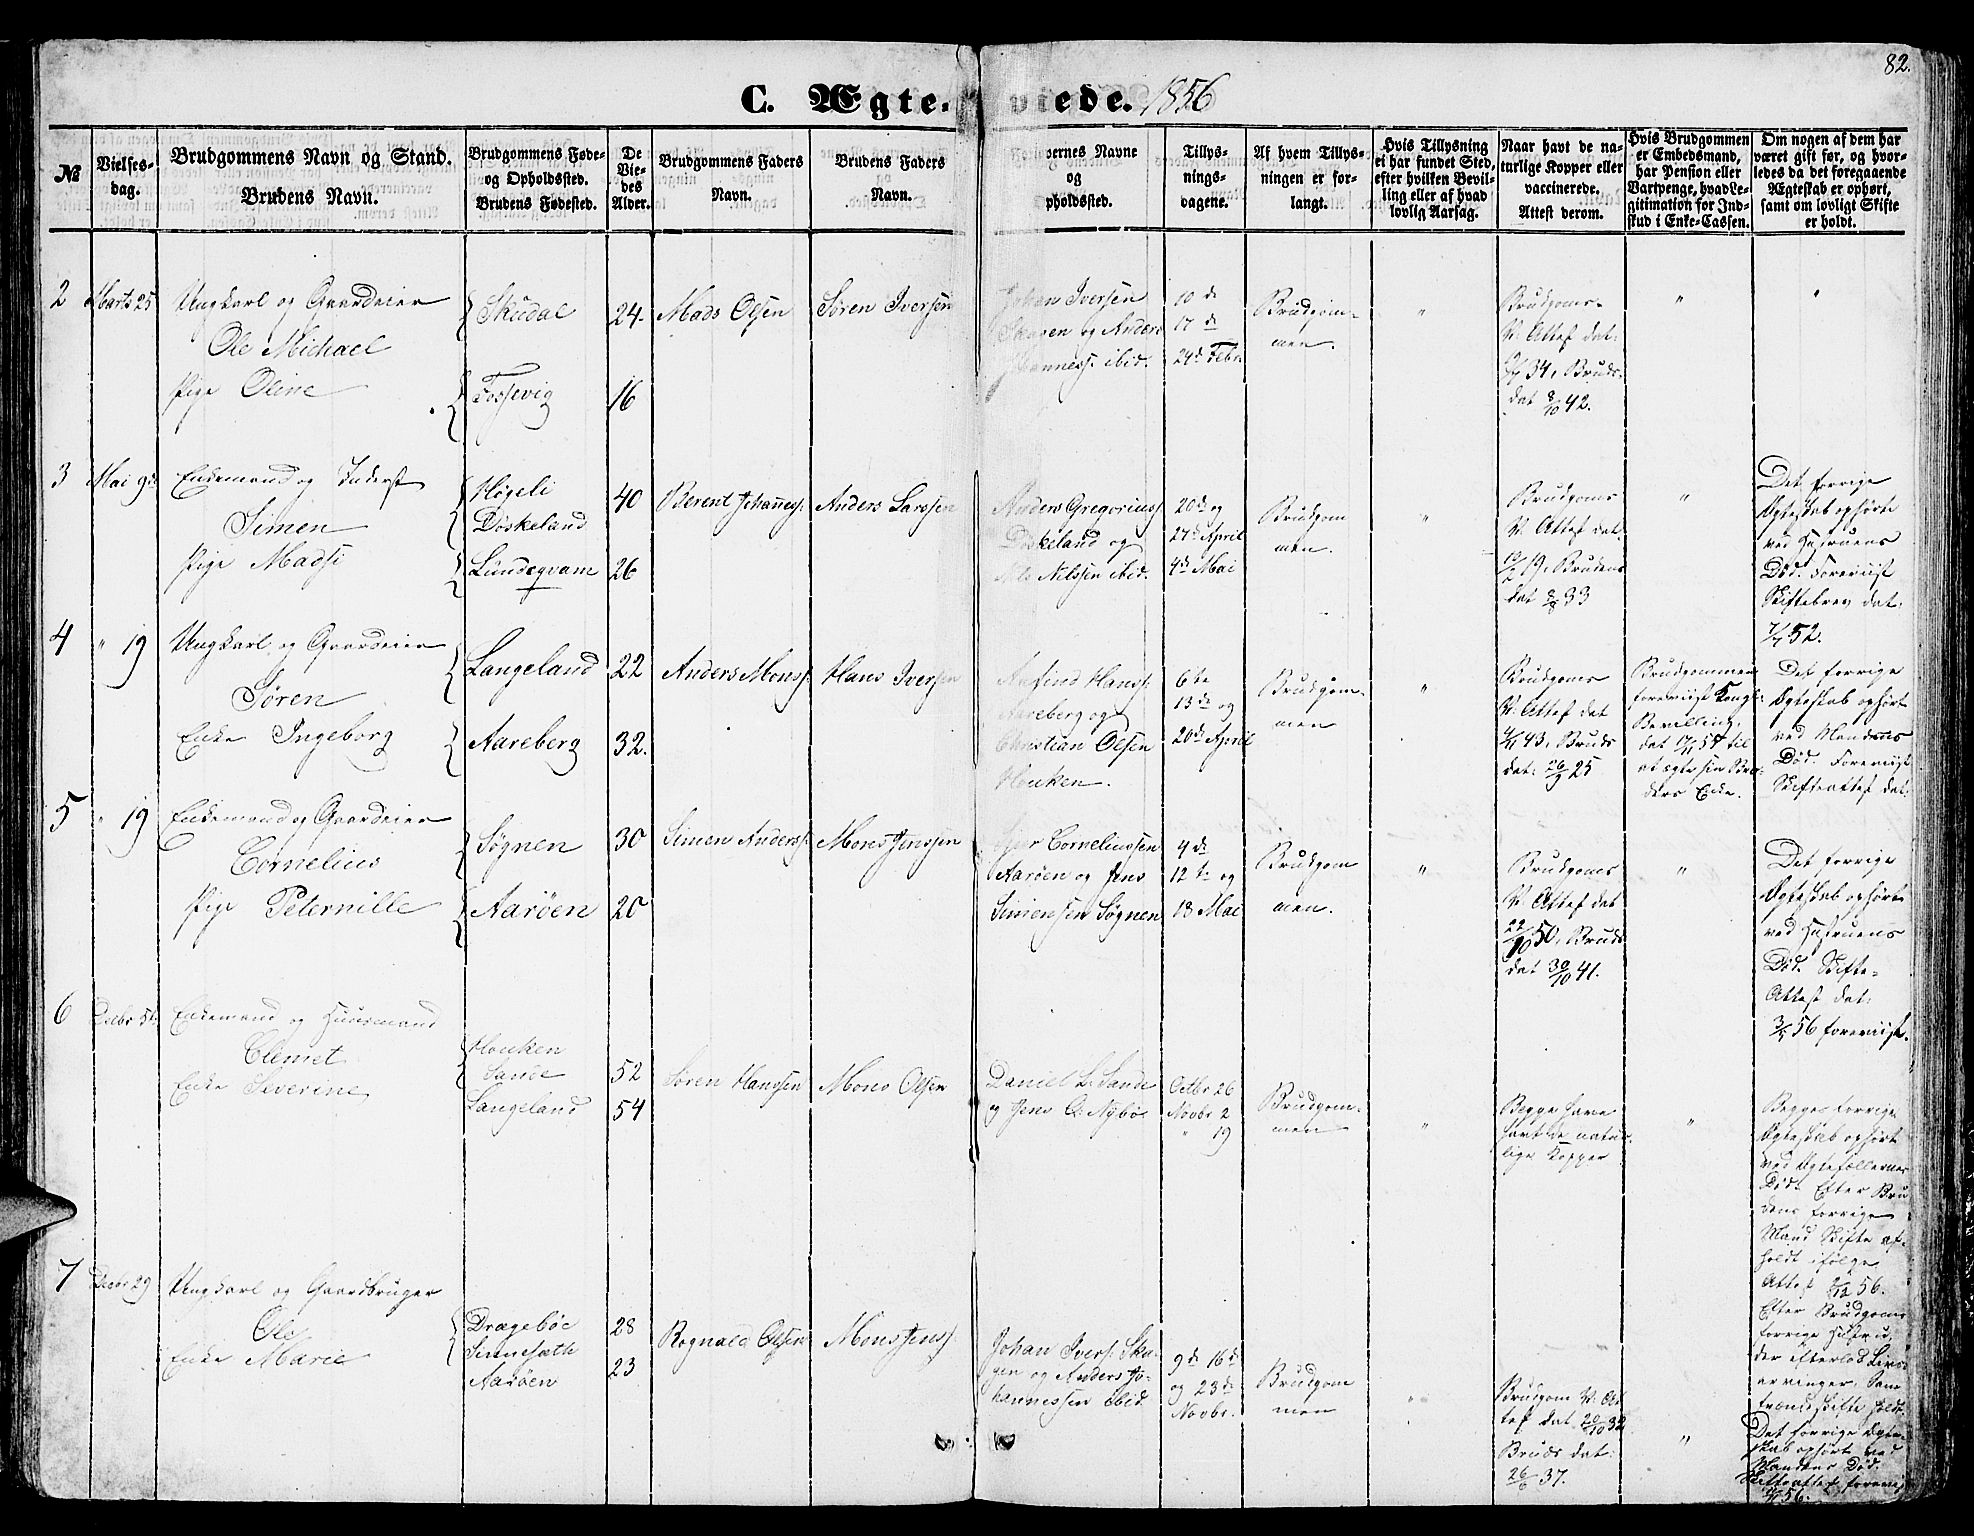 82.
C. Ægteviede. 1856
№
Vielses-
dag.
Brudgommens Navn og Stand.
Brudens Navn.
Brudgommens Føde-
og Opholdssted.
Brudens Fødested.
De
Vie-
des
Alder.
Brudgommens Faders
Navn.
Brudens Faders
Navn.
overnes Navne
og
pholdssted.
Tillys-
nings-
dagene.
Af hvem Tillys-
ningen er for-
langt.
Hvis Tillysning
ei har fundet Sted,
efter hvilken Bevil-
ling eller af hvad
lovlig Aarsag.
Naar havt de na-
turlige Kopper eller
vaccinerede.
Attest derom.
Hvis Brudgommen
er Embedsmand,
har Pension eller
Vartpenge, hvad Le-
gitimation for Ind-
skud i Enke-Cassen.
Om nogen af dem har
været gift før, og hvor-
ledes da det foregaaende
Ægteskab er ophørt,
samt om lovligt Skifte
er holdt.
2
Marts 25
Ungkarl og Gaardeier
Ole Michael
Pige Oline
Skudal
Fossevig
24.
16
Mads Olsen
Søren Iversen
Johan Iversen
Skagen og Anders
Johanness. ibid.
10de
17de
24de Febr.
Brudgom-
men.
"
Brudgoms-
V. Attest dat:
34, Bruds.
dat 8/10 42.
"
"
3
Mai 9de
Enkemand og Inderst
Simen
Pige Madsi
Høgeli
Døskeland
Lundeqvam
40
26
Berent Johanness:
Anders Larssen
Anders Gregoriuss
Døskeland og
Nils Nilssen ibid.
20de og
27de April
4de Mai
Brudgom
men.
"
Brudgoms
V. Attest dat.
19, Brudens
dat 8/8 33
"
Det forrige
Ægteskab ophørte
ved Hustruens
Død. Foreviist
Skiftebrev dat.
7/7 52.
4
" 19
Ungkarl og Gaardeier
Søren
Enke Ingeborg
Langeland
Aareberg
22
32.
Anders Monss.
Hans Iversen
Anfind Hanss:
Aareberg og
Christian Olsen
Houken.
6te
13de og
20de April
Brudgom-
men
"
Brudgoms
V. Attest dat
43, Bruds
dat: 26/9 25
Brudgommen
foreviist Kongl:
Bevilling,
dat 54 til
at ægte sin Bro-
ders Enke.
Det forrige
Ægteskab ophørt
ved Mandens
Død. Foreviist
Skifteattest dat.
5
" 19
Enkemand og Gaardeier
Cornelius
Pige Peternille
Søgnen
Aarøen
30
20
Simen Anderss:
Mons Jenssen
Corneliussen
Aarøen og Jens
Simensen Søgnen
4de
12te og
18 Mai
Brudgom
men.
"
Brudgoms
V. Attest dat
22/10 50, Bruds
dat 30/10 41.
"
Det forrige
Ægteskab ophørt
ved Hustruens
Død. Skifte-
Attest dat:
56 foreviist.
6
Decbr 5te
Enkemand og Huusmand
Clemet
Enke Severine
Houken
Sande
Langeland
52
54
Søren Hanssen
Mons Olsen
Daniel L. Sande
og Jens O. Nybø
Octbr 26
Novbr 2
" 19
Brudgom-
men
"
Begge have
havt de natur-
lige Kopper
"
Begges forrige
Ægteskab ophørt
ved Ægtefællernes
Død. Efter Bru
dens forrige
Mand Skifte af-
holdt ifølge
Attest 56.
Efter Brudgoms
forrige Hustru,
der efterlod Livs-
arvinger, Sam
frændeskifte holdt.
7
Decbr 29
Ungkarl og Gaardbruger
Ole
Enke Marie
Drægebøe
Sennesæth
Aarøen
28
23
Rognald Olsen
Mons Jenss.
Johan Iverss. Ska-
gen og Anders Jo-
hannessen ibid.
9de 16de
og 23de
Novbr.
Brudgom
men
"
Brudgom V. At
test dat 20/10 32
Bruds dat:
26/6 37.
"
Det forrige Ægte-
skab ophørt ved
Mandens Død.
Skifteattest foreviist
56.